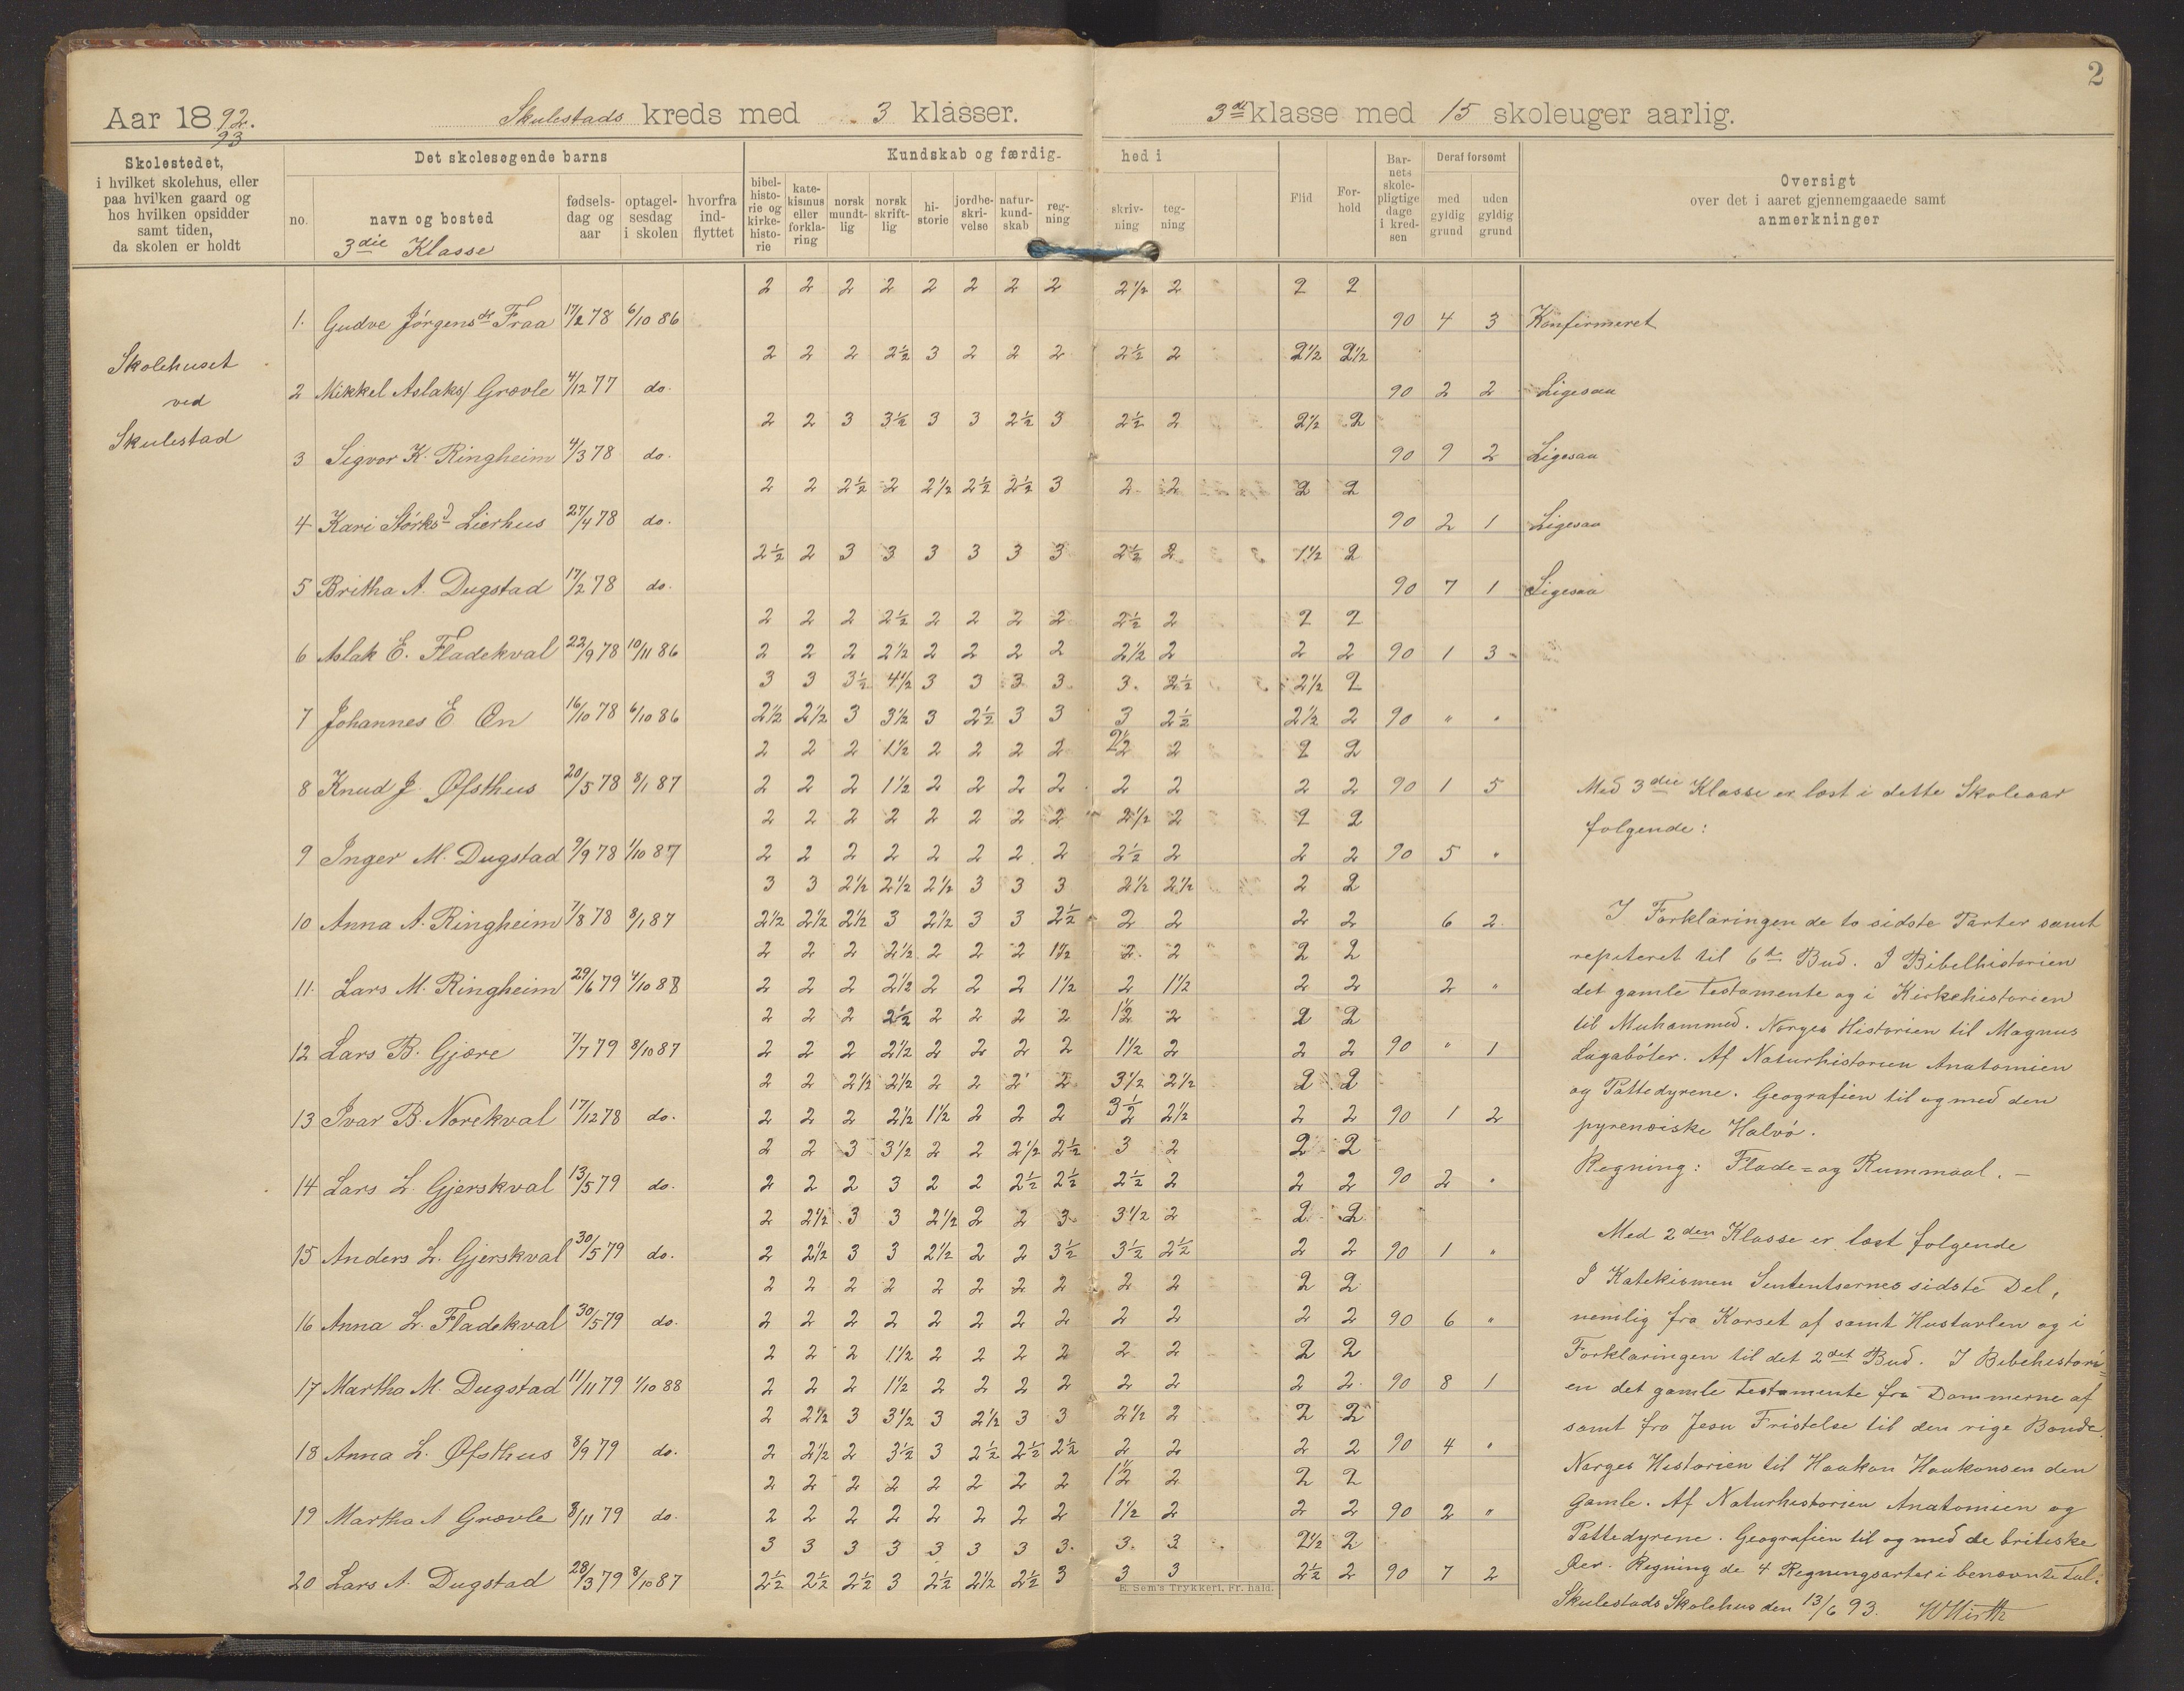 2
Aar 1892. Skulestads kreds med 3 klasser. 3die klasse med 15 skoleuger aarlig.
93
Skolestedet, i hvilket skolehus, eller paa hvilken gaard og hos hvilken opsidder samt tiden, da skolen er holdt
Det skolesøgende barns
no. navn og bosted fødselsdag og aar optagelsesdag i skolen hvorfra indflyttet
3die Klasse
Kundskab og færdighed i
bibelhistorie og kirkehistorie katekismus eller forklaring norsk mundtlig norsk skriftlig historie jordbeskrivelse naturkundskab regning skrivning tegning
Flid Forhold Barnets skolepligtige dage i kredsen Deraf forsømt med gyldig grund uden gyldig grund
Oversigt over det i aaret gjennemgaaede samt anmerkninger
Skolehuset
ved
Skulestad
2 2 2 2 2 2 2 2 2½ 2 2 2
1. Gudve Jørgensdr Fraa 17/2 78 6/10 86 90 4 3 Konfirmeret
2 2 2 2½ 3 2 2 2 2½ 2 2½ 2½
2 Mikkel Aslaks/ Grovle 4/12 77 do. 90 2 2 Ligesaa
2 2 3 3½ 3 3 2½ 3 2½ 2 2½ 2
3 Sigvor K. Ringheim 4/3 78 do. 90 9 2 Ligesaa
2 2 2½ 2 2½ 2½ 2½ 3 2 2 2 2
4 Kari Størksd Lierhus 27/4 78 do. 90 2 1 Ligesaa
2½ 2 3 3 3 3 3 3 2½ 2 1½ 2
5 Britha A. Dugstad 17/2 78 do. 90 7 1 Ligesaa
2 2 2 2½ 2 2 2 2 2½ 2 2 2
6 Aslak E. Fladekval 22/9 78 10/11 86 2 2 2 2½ 2 2 2 2 2½ 2 2 2 90 1 3
3 3 3½ 4½ 3 3 3 3 3 2½ 2½ 2
7 Johannes E. Øn 16/10 78 6/10 86 2½ 2½ 3 3½ 3 2½ 3 3 3 2½ 2½ 2 90 " "
2 2 2 1½ 2 2 2 2 2½ 2 2 2
8 Knud J. Øfsthus 20/5 78 8/1 87 2 2 2 1½ 2 2 2 2 2 2 2 2 90 1 5
2 2 2 2 2 2 2 2 2½ 2 2 2
9 Inger M. Dugstad 9/9 78 1/10 87 2 2 2 2 2 2 2 2 2½ 2 2 2 90 5 "
3 3 2½ 2½ 2½ 3 3 3 2½ 2½ 2 2
10 Anna A. Ringheim 7/8 78 8/1 87 2½ 2½ 2½ 3 2½ 3 3 2½ 2 2 2 2 6 2
2 2 2 2½ 2 2 2 1½ 2 2 2 2
11. Lars M. Ringheim 29/6 79 4/10 88 2 2 2 2½ 2 2 2 1½ 2 1½ 2 2 2 "
2 2 2 2½ 2 2 2 2 1½ 2 2 2
12 Lars B. Gjøre 7/7 79 8/10 87 2 2 2 2½ 2 2 2 2 1½ 2 2 2 90 " 1
2 2 2½ 2½ 2 2 2 2 3½ 2½ 2 2
13 Ivar B. Norekval 17/12 78 do. 2 2 2 2½ 1½ 2 2 2 3½ 2½ 2 2 90 1 2
2 2 3 3½ 2 2 2½ 2½ 3 2 2 2
14 Lars L. Gjerskval 13/5 79 do. 2 2 2 3 2 2 2½ 2½ 2½ 2 2 2 90 2 "
2 2½ 3 3 2½ 2 2 3 3½ 2 2 2
15 Anders L. Gjerskval 30/5 79 do. 2 2½ 3 3 2½ 2 2 3½ 3½ 2½ 2 2 90 1 "
2 2 2 2 2 2 2 2 2 2 2 2
16 Anna L. Fladekval 30/5 79 do. 2 2 2 2 2 2 2 2 2 2 2 2 90 6 "
2 2 2 1½ 2 2 2 2 2 2 2 2
17 Martha M. Dugstad 11/11 79 1/10 88 2 2 2 1½ 2 2 2 2 2 2 2 2 90 8 1
2 2½ 3 3½ 3 2½ 3 3 2½ 2 2 2
18 Anna L. Øfsthus 8/9 79 do. 2 2½ 2 3½ 3 2½ 2½ 2½ 2 2 2 2 90 4 "
2 2 2 2 2 2 2 2 1½ 2 2 2
19 Martha A Grovle 8/11 79 do. 2 2 2 2 2 2 2 2 1½ 2 2 2 90 2 "
3 3 3 3 3 3 3 3. 3. 3 2½ 2
20 Lars A. Dugstad 28/3 79 8/10 87 2½ 2½ 2½ 3 2½ 2½ 2½ 3 3 3 2½ 2 90 7 2
E. Sem's Trykkeri, Fr. hald.
Med 3die Klasse er læst i dette Skoleaar
følgende:
I Forklaringen de to sidste Parter samt
repeteret til 6te Bud. I Bibelhistorien
det gamle Testamente og i Kirkehistorien
til Muhammed. Norges Historien til Magnus
Lagabøter. Af Naturhistorien Anatomien
og Pattedyrene. Geografien til og med den
pyrenæiske Halvø.
Regning: Flade= og Rummaal. –
Med 2den Klasse er læst følgende
I Katekismen Sententsernes sidste Del,
nemlig fra Korset af samt Hustavlen og i
Forklaringen til det 2det Bud. I Bibehistori=
en det gamle Testamente fra Dommerne af
samt fra Jesu Fristelse til den rige Bonde.
Norges Historien til Haakon Haakonsen den
Gamle. Af Naturhistorien Anatomien og
Pattedyrene. Geografien til og med de britiske
Øer. Regning de 4 Regningsarter i benævnte Tal.
Skulestads Skolehus den 13/6 93. WHirth